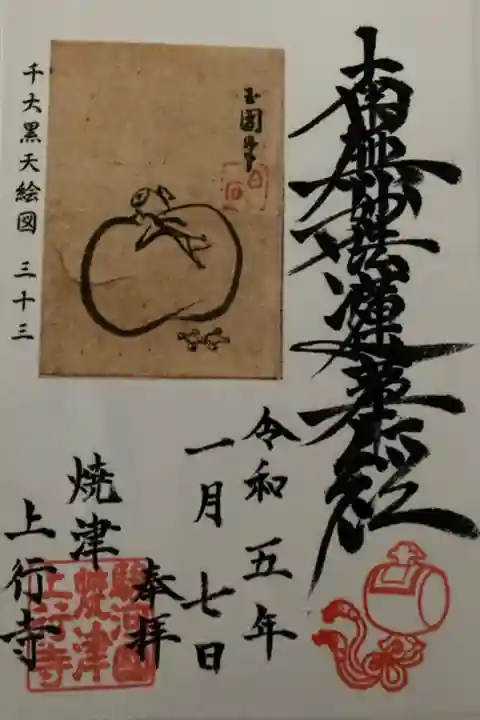 南無妙法蓮華経
玉園筆
千大黒天絵図 三十三
令和五年
一月七日
奉拝
焼津
上行寺
駿河国
焼津
上行寺